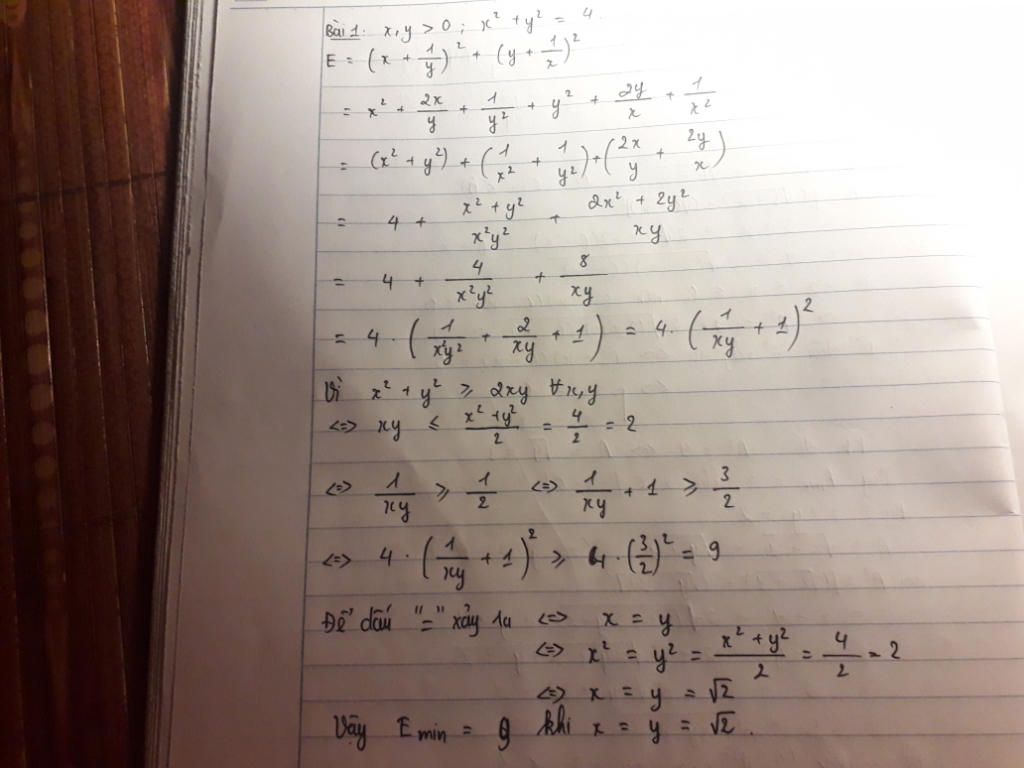 Bài 1: x, y > 0 ; x² + y² = 4.
E = (x + 1/y)² + (y + 1/x)²
= x² + 2x/y + 1/y² + y² + 2y/x + 1/x²
= (x² + y²) + (1/x² + 1/y²) + (2x/y + 2y/x)
= 4 + (x² + y²)/(x²y²) + (2x² + 2y²)/(xy)
= 4 + 4/(x²y²) + 8/(xy)
= 4 · (1/(x²y²) + 2/(xy) + 1) = 4 · (1/(xy) + 1)²
Vì x² + y² ⩾ 2xy ∀x,y
<=> xy ≤ (x² + y²)/2 = 4/2 = 2
<=> 1/(xy) ⩾ 1/2 <=> 1/(xy) + 1 ⩾ 3/2
<=> 4 · (1/(xy) + 1)² ⩾ 4 · (3/2)² = 9
Để dấu "=" xảy ra <=> x = y
<=> x² = y² = (x² + y²)/2 = 4/2 = 2
<=> x = y = √2
Vậy E min = 9 khi x = y = √2.